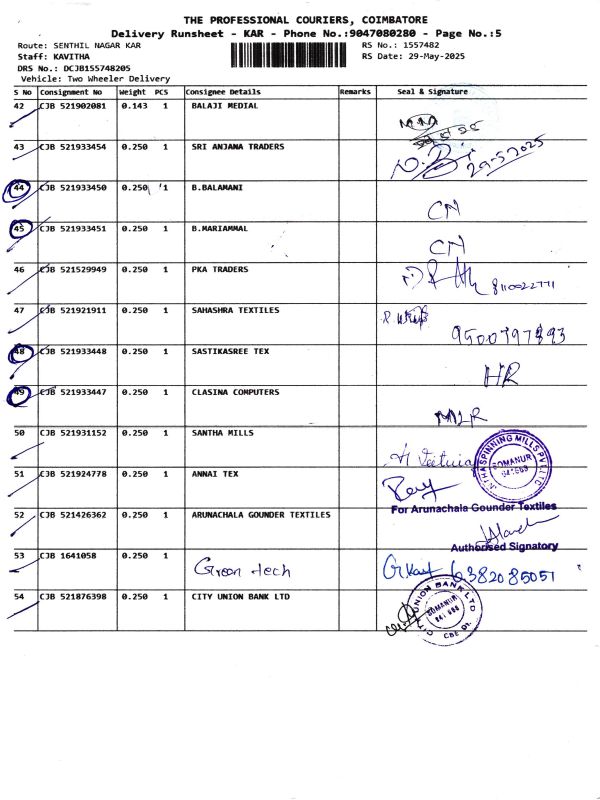 THE PROFESSIONAL COURIERS, COIMBATORE
Delivery Runsheet - KAR - Phone No.:9047080280 - Page No.:5
Route: SENTHIL NAGAR KAR RS No.: 1557482
Staff: KAVITHA RS Date: 29-May-2025
DRS No.: DCJB155748205
Vehicle: Two Wheeler Delivery
S No Consignment No Weight PCS Consignee Details Remarks Seal & Signature
42 CJB 521902081 0.143 1 BALAJI MEDIAL
43 CJB 521933454 0.250 1 SRI ANJANA TRADERS 29-5-2025
44 CJB 521933450 0.250 1 B.BALAMANI CN
45 CJB 521933451 0.250 1 B.MARIAMMAL CN
46 CJB 521529949 0.250 1 PKA TRADERS
47 CJB 521921911 0.250 1 SAHASHRA TEXTILES
48 CJB 521933448 0.250 1 SASTIKASREE TEX HR
49 CJB 521933447 0.250 1 CLASINA COMPUTERS MLR
50 CJB 521931152 0.250 1 SANTHA MILLS
SPINNING MILLS PVT LTD
SOMANUR
51 CJB 521924778 0.250 1 ANNAI TEX
52 CJB 521426362 0.250 1 ARUNACHALA GOUNDER TEXTILES For Arunachala Gounder Textiles
Authorised Signatory
53 CJB 1641058 0.250 1 Green tech 6382085051
54 CJB 521876398 0.250 1 CITY UNION BANK LTD
CITY UNION BANK LTD
SOMANUR
CBE Dt.